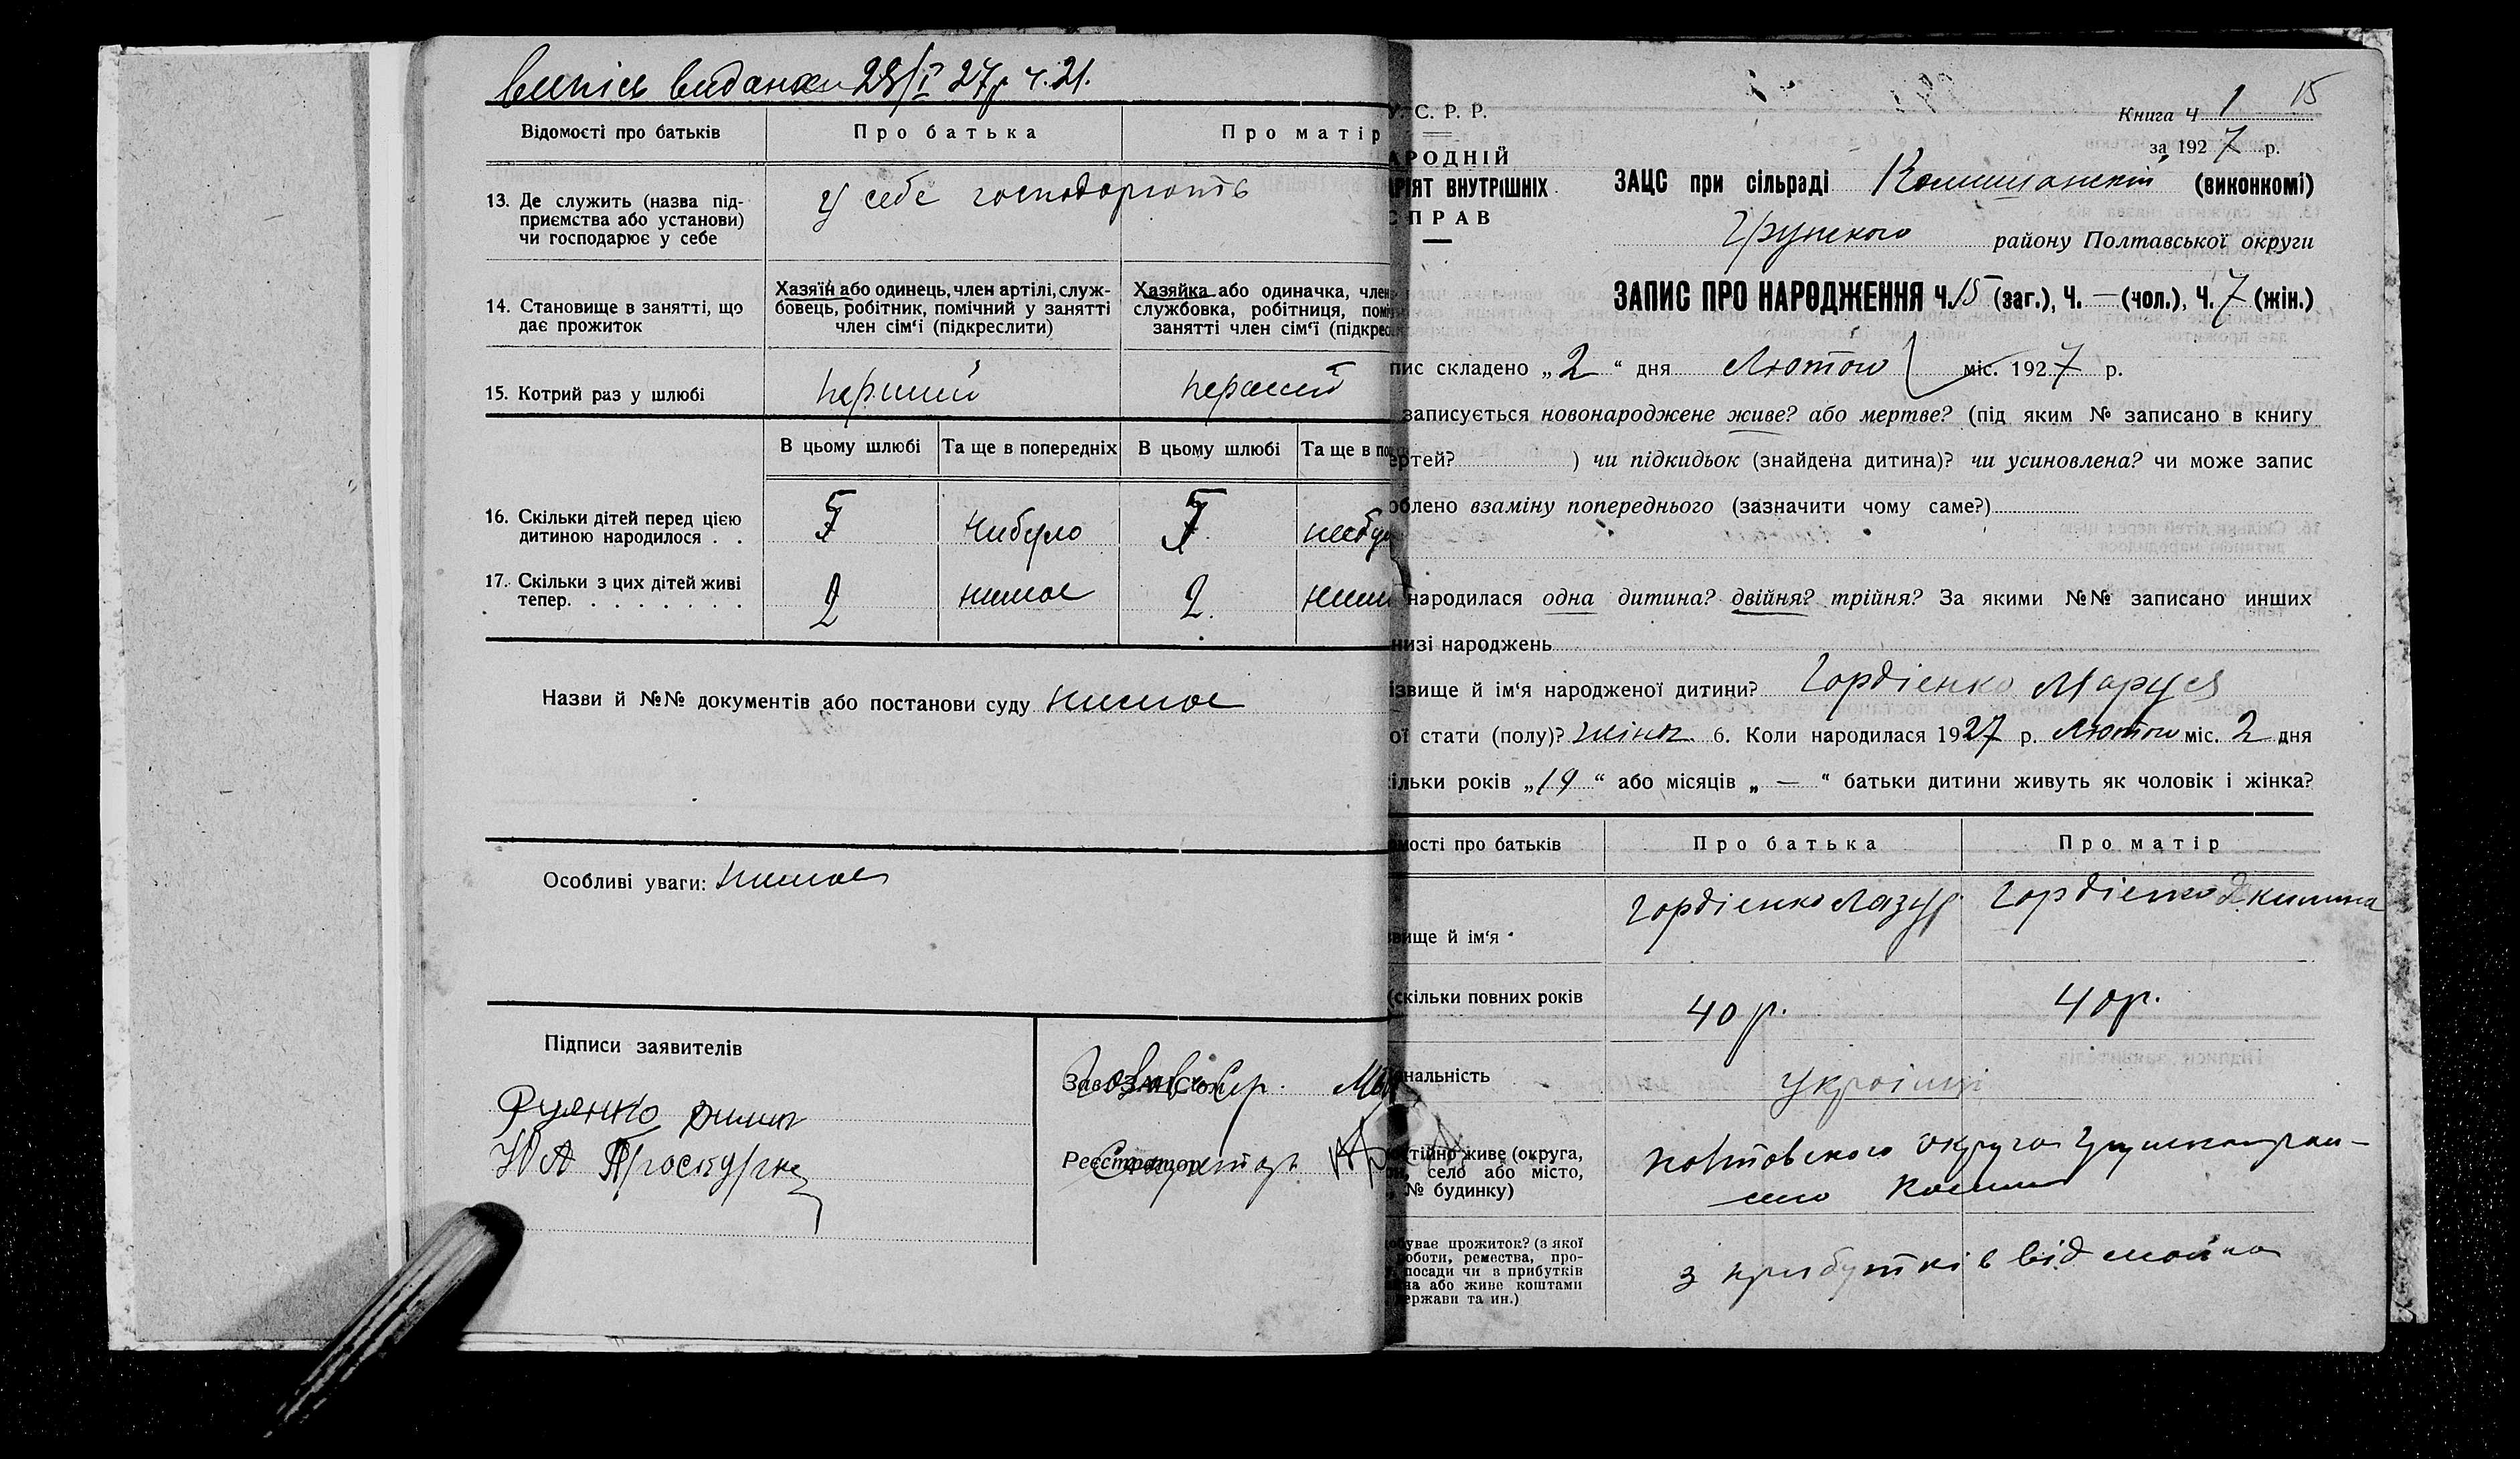 випісь видана 28/I 27р ч. 21.
Відомості про батьків Про батька Про матір
13. Де служить (назва під-
приємства або установи)
чи господарює у себе
у себе господарюють
14. Становище в занятті, що
дає прожиток
Хазяїн або одинець, член артілі, служ-
бовець, робітник, помічний у занятті
член сім'ї (підкреслити)
Хазяйка або одиначка, член
службовка, робітниця, помі
занятті член сім'ї (підкрес
15. Котрий раз у шлюбі перший перший
В цьому шлюбі Та ще в попередніх В цьому шлюбі Та ще в по
16. Скільки дітей перед цією
дитиною народилося . .
5 нибуло 5
17. Скільки з цих дітей живі
тепер. . . . . . . .
2 нимає 2.
Назви й №№ документів або постанови суду нимає
Особливі уваги: нимає
Підписи заявителів
Зав. ЗАЦС'ом
Реєстратор
Секретарь
У. С. Р. Р.
АРОДНІЙ
АРІЯТ ВНУТРІШНІХ
СПРАВ
15
Книга Ч 1
за 1927 р.
ЗАЦС при сільраді Комишанській (виконкомі)
Грунского району Полтавської округи
ЗАПИС ПРО НАРОДЖЕННЯ Ч. 15 (заг.), Ч. — (чол.), Ч. 7 (жін.)
пис складено „ 2 “ дня Лютого міс. 1927 р.
записується новонароджене живе? або мертве? (під яким № записано в книгу
ертей? ) чи підкидьок (знайдена дитина)? чи усиновлена? чи може запис
облено взаміну попереднього (зазначити чому саме?)
народилася одна дитина? двійня? трійня? За якими №№ записано инших
низі народжень
ізвище й ім'я народженої дитини? Гордієнко Маруся
ої стати (полу)? жіноч. 6. Коли народилася 1927 р. Лютого міс. 2 дня
ільки років „ 19 “ або місяців „ — “ батьки дитини живуть як чоловік і жінка?
мості про батьків Про батька Про матір
вище й ім'я
Гордієнко Лазур Гордієнко Якилина
(скільки повних років 40 р. 40 р.
нальність Українці
стійно живе (округа,
он, село або місто,
№ будинку)
село
обуває прожиток? (з якої
роботи, ремества, про-
посади чи з прибутків
на або живе коштами
ержави та ин.)
з прибутків від майна